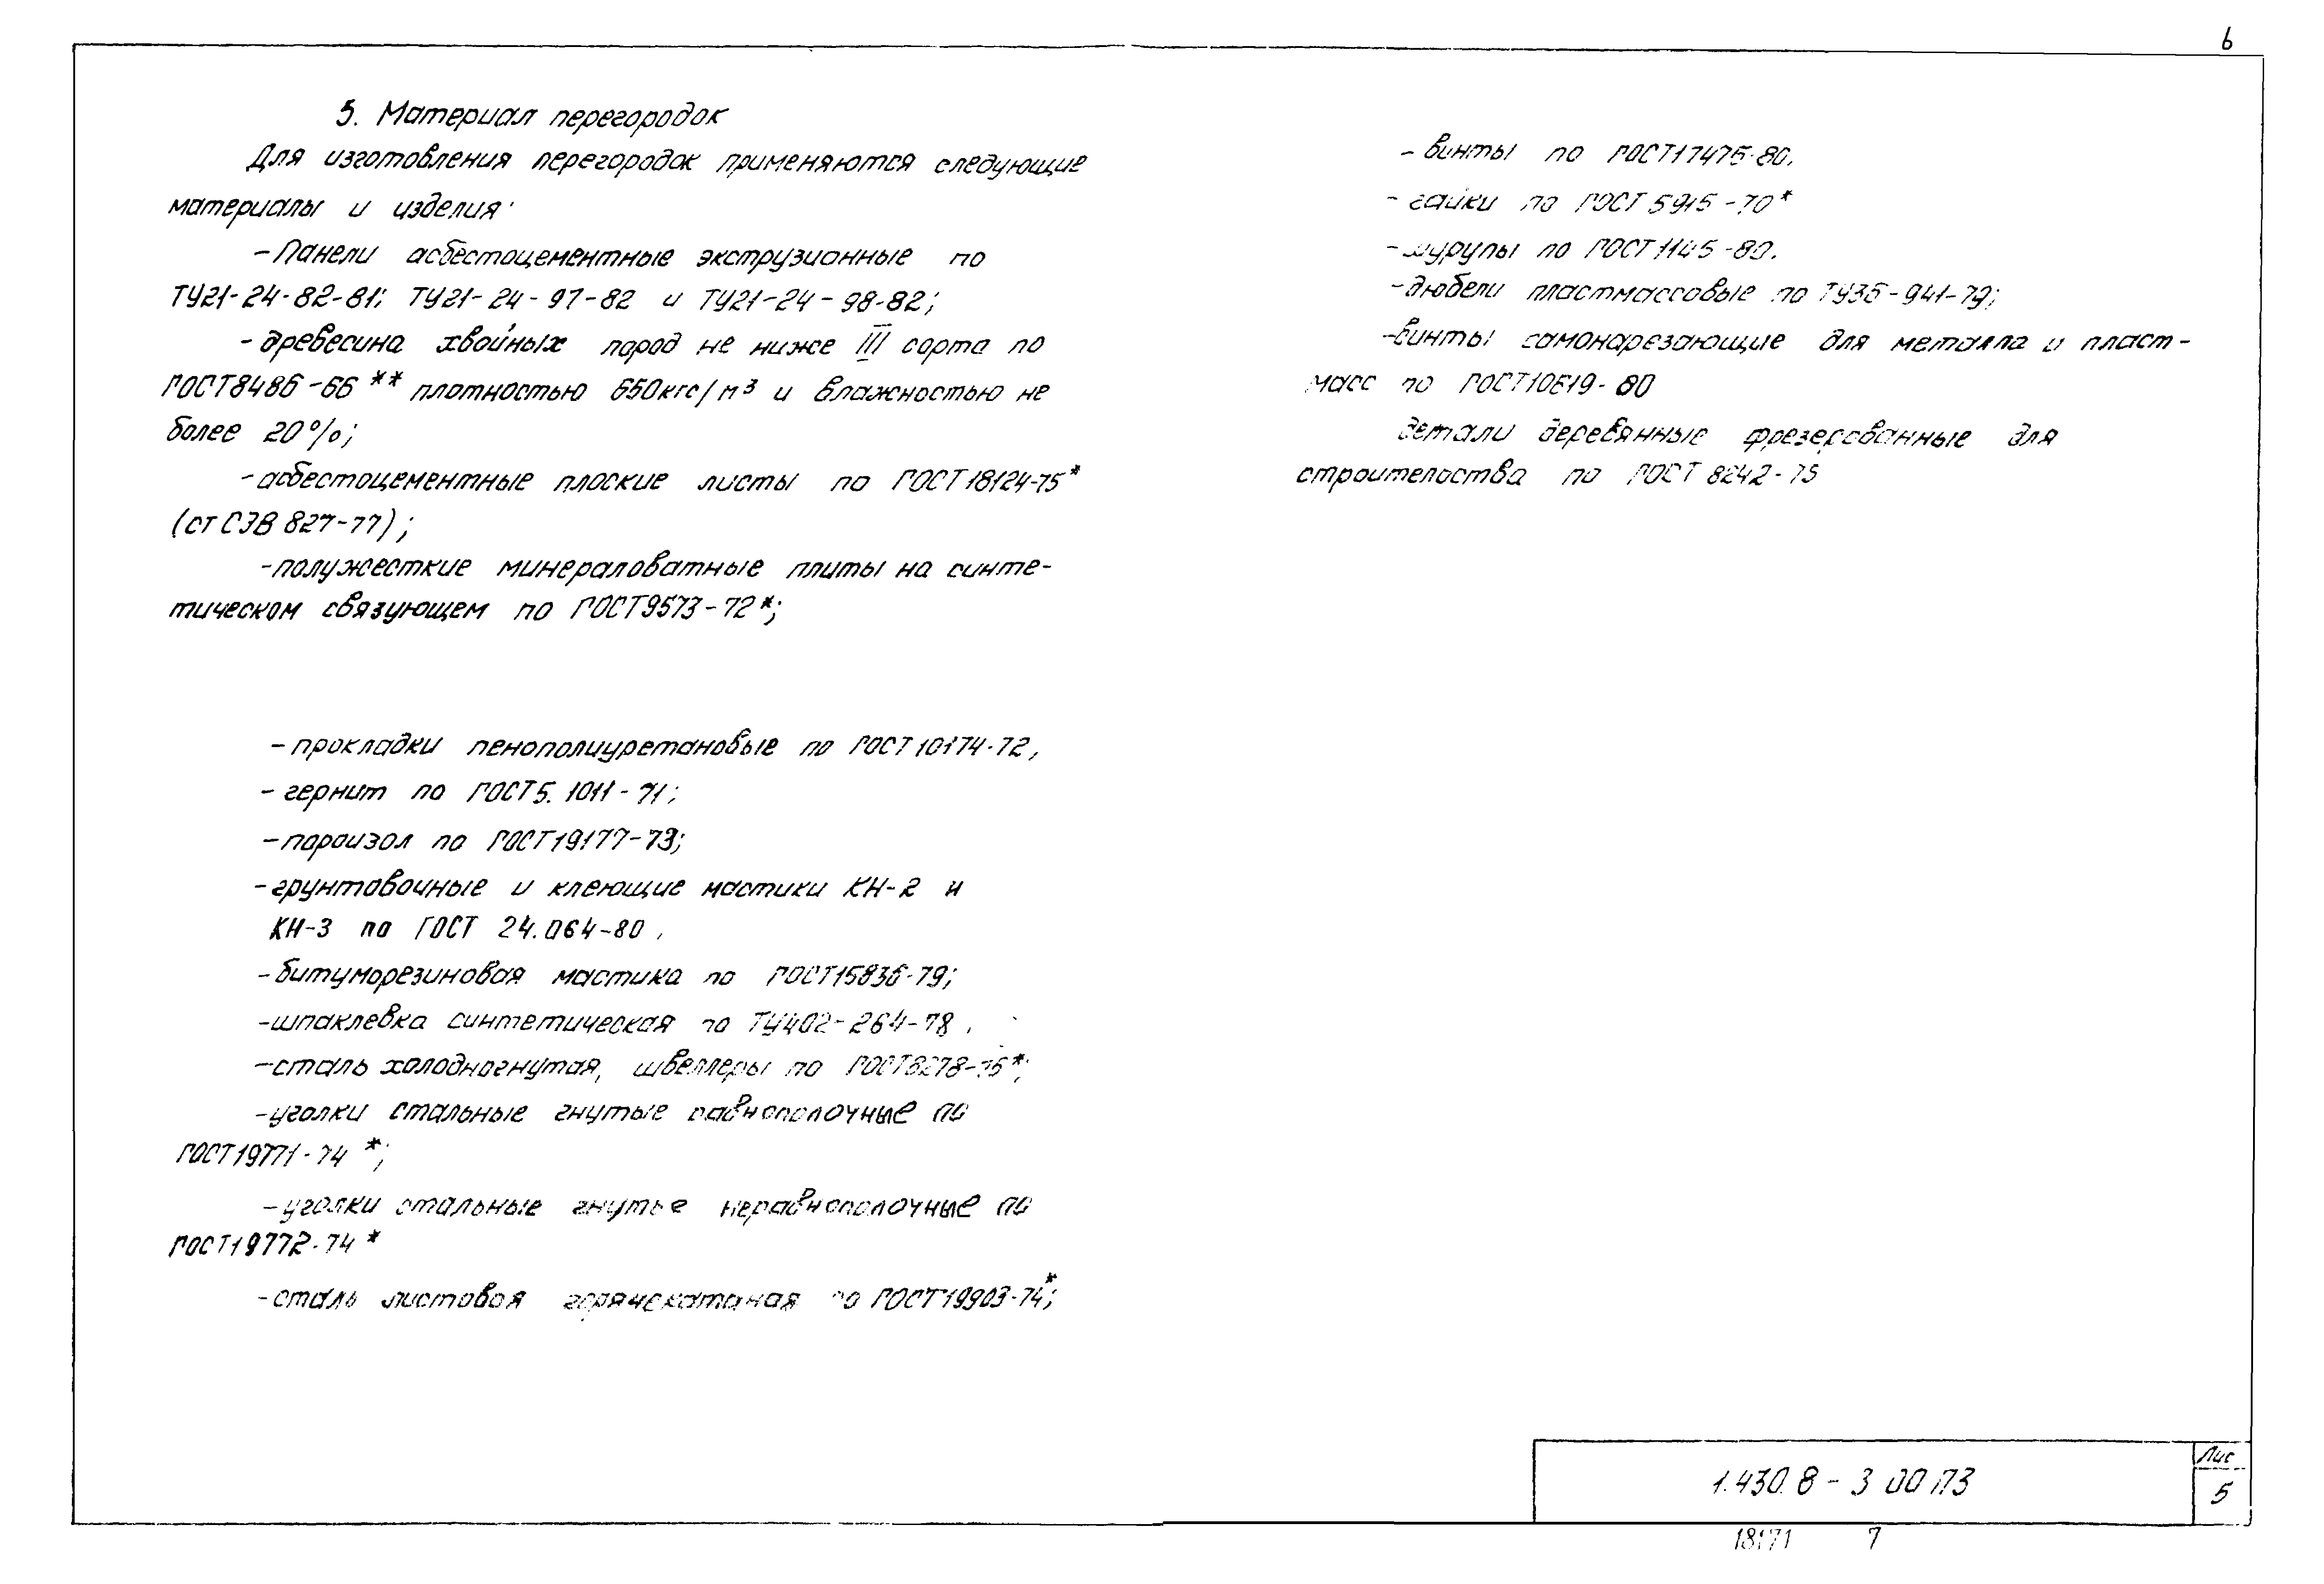 6
5. Материал перегородок
Для изготовления перегородок применяются следующие
материалы и изделия·
- Панели асбестоцементные экструзионные по
ТУ21-24-82-81; ТУ21-24-97-82 и ТУ21-24-98-82;
- древесина хвойных пород не ниже III сорта по
ГОСТ8486-66** плотностью 650кгс/м³ и влажностью не
более 20%;
- асбестоцементные плоские листы по ГОСТ18124-75*
(ст СЭВ 827-77);
- полужесткие минераловатные плиты на синте-
тическом связующем по ГОСТ9573-72*;
- прокладки пенополиуретановые по ГОСТ10174-72,
- гернит по ГОСТ5.1011-71;
- пороизол по ГОСТ19177-73;
- грунтовочные и клеющие мастики КН-2 и
КН-3 по ГОСТ 24.064-80,
- битуморезиновая мастика по ГОСТ15836-79;
- шпаклевка синтетическая по ТУ402-264-78.
- сталь холодногнутая, швеллеры по ГОСТ8278-75*;
- уголки стальные гнутые равнополочные по
ГОСТ19771-74*;
- уголки стальные гнутые неравнополочные по
ГОСТ19772-74*
- сталь листовая горячекатаная по ГОСТ19903-74*;
- винты по ГОСТ17475-80.
- гайки по ГОСТ 5915-70*
- шурупы по ГОСТ1145-80.
- дюбели пластмассовые по ТУ35-941-79;
- винты самонарезающие для металла и пласт-
масс по ГОСТ10619-80
детали деревянные фрезерованные для
строительства по ГОСТ 8242-75
1.430.8-3 00 ПЗ
Лис
5
18171 7